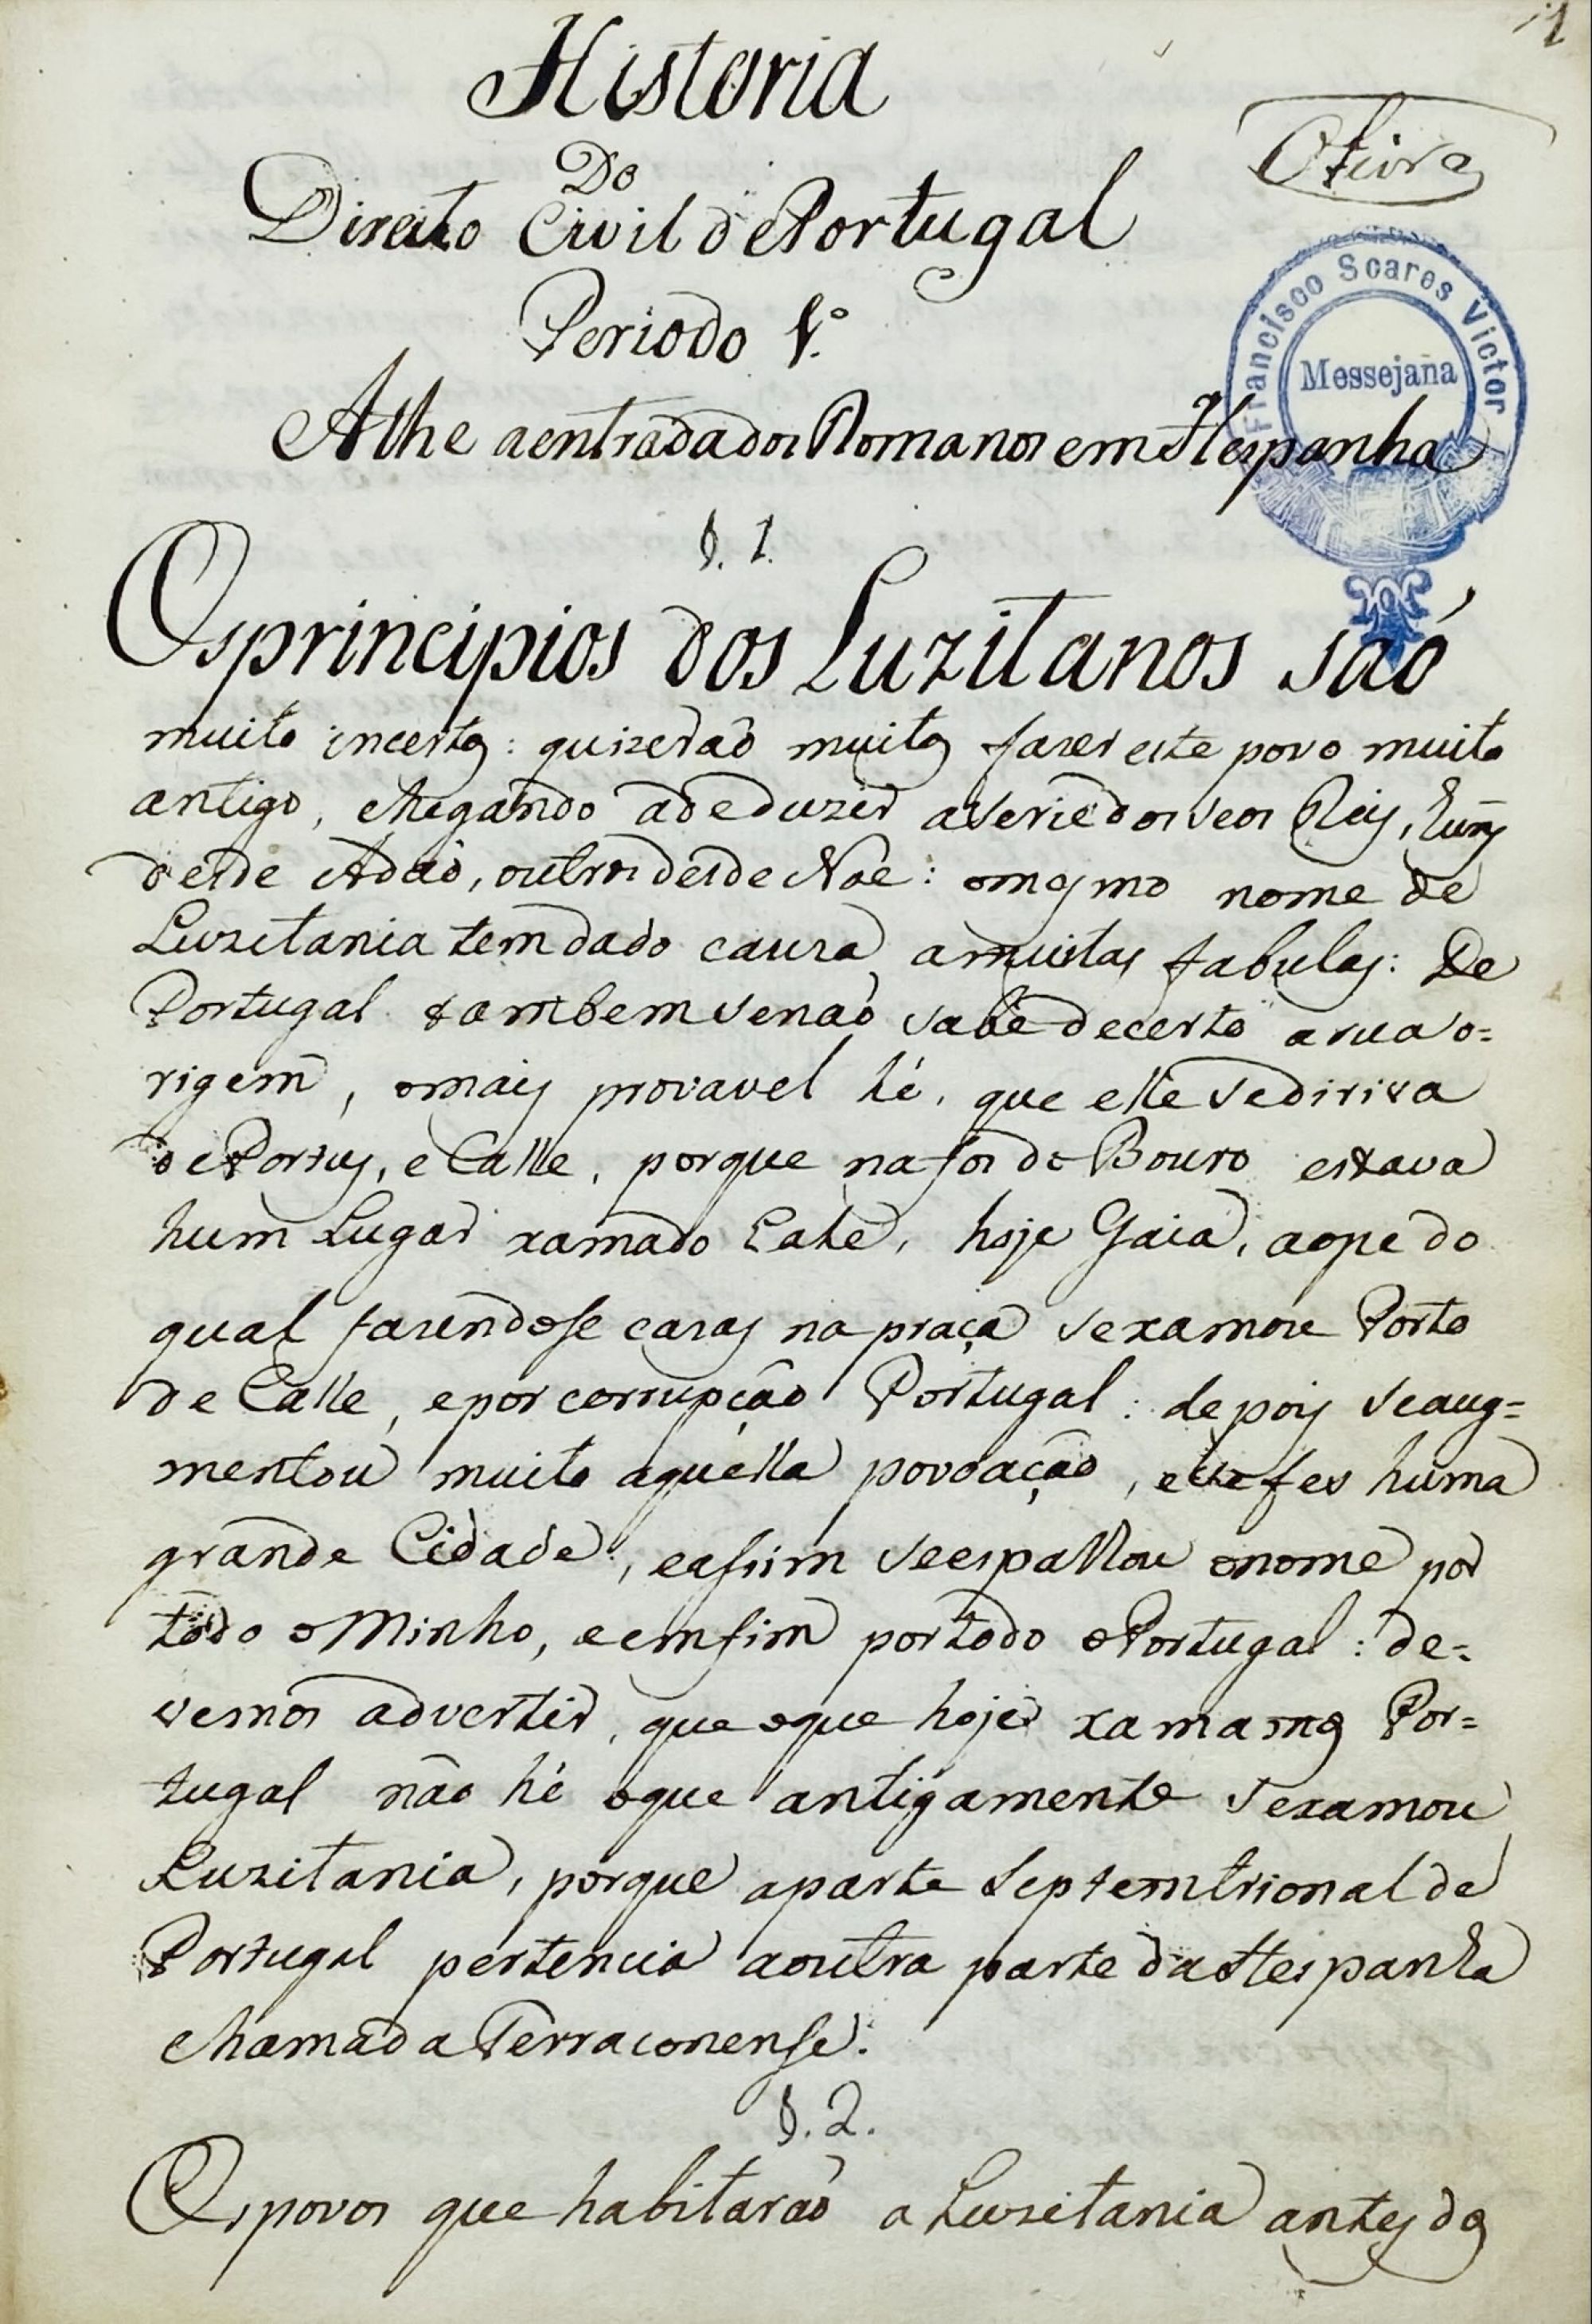 1
Historia
Do
Direito Civil de Portugal
Periodo 1.º
Athe a entrada dos Romanos em Hespanha
Francisco Soares Victor
Messejana
§. 1.
Os principios dos Luzitanos saó
muito incertos: quizeraõ muitos fazer este povo muito
antigo, chegando a deduzir a serie dos seos Reis, huns
desde Adaõ, outros desde Noe: o mesmo nome de
Luzitania tem dado cauza a muitas fabulas: De
Portugal tambem se naõ sabe de certo a sua o=
rigem, o mais provavel hé, que elle se diriva
de Portus, e Calle, porque na fos do Douro estava
hum Lugar xamado Cale, hoje Gaia, ao pe do
qual fazendose cazas na praça se xamou Porto
de Calle, e por corrupçaõ Portugal: depois se aug=
mentou muito aquella povoaçaõ, e se fes huma
grande Cidade, e assim se espalhou o nome por
todo o Minho, e emfim por todo o Portugal: de=
vemos advertir, que o que hoje xamamos Por=
tugal naõ hé o que antigamente se xamou
Luzitania, porque a parte septemtrional de
Portugal pertencia a outra parte da Hespanha
chamada Terraconense.
§. 2.
Os povos que habitaraõ a Luzitania antes dos